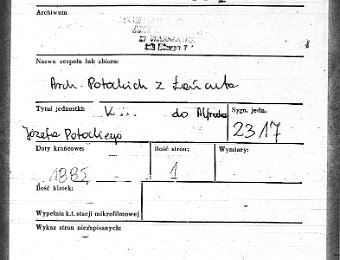 Archiwum
W WARSZAWIE
Nazwa zespołu lub zbioru:
Arch. Potockich z Łańcuta
Tytuł jednostki:
K... do Alfreda
Józefa Potockiego
Sygn. jedn.
2317
Daty krańcowe:
1885
Ilość stron:
1
Wymiary:
Ilość klatek:
Wypełnia k.t. stacji mikrofilmowej
Wykaz stron niezapisanych: